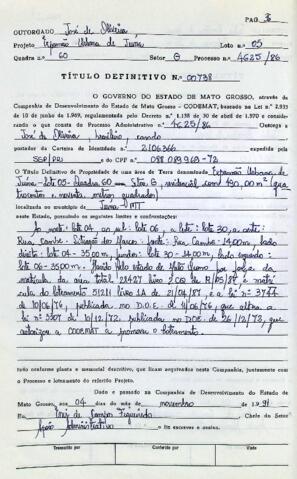 PAG
OUTORGADO José de Oliveira,
Projeto Expansão Urbana de Juína Lote no 05
Quadra no 60 Setor Processo no 4625/86
TÍTULO DEFINITIVO No 00738
O GOVERNO DO ESTADO DE MATO GROSSO, através da
Companhia de Desenvolvimento do Estado de Mato Grosso - CODEMAT, baseado na Lei no
10 de junho de 1.969, regulamentada pelo Decreto n. 1.138 de 30 de abril de 1.970 e considerando
o que consta do Processo Administrativo no 4625/86 Outorga a
José de Oliveira, brasileiro,
portador da Carteira de Identidade no 2106366 expedida pela
SSP/PR e do CPF no 088 089 968-72
O Título Definitivo de Propriedade de uma área de Terra denominada Expansão Urbana de
Juína - Lote 05 - Quadra 60 residencial, com 490,00 m²
e noventa, metros quadrados)
localizada no município de Juína - MT
neste Estado, possuindo os seguintes limites e confrontações:
Ao norte: lote 04, ao sul: lote 06, a leste: lote 30, a oeste:
Rua frente: Rua 14,00m, lado
direito: lote 04 - 35,00m, fundos: lote 30 - 14,00m, lado esquerdo:
lote 06 - 35,00m. pelo estado de Mato Grosso por força da
matrícula da área total 21427 livro 2
cula do loteamento 51211 livro 1A de 21/04/87, e a lei no
10/06/76, publicada no D.O.E. de que altera a
lei no 3307 de 10/12/72 publicada no DOE de 26/12/72, que
autorizou a CODEMAT a promover o loteamento.
tudo conforme planta e memorial descritivo, que ficam arquivados nesta Companhia, juntamente com
o Processo e loteamento do referido Projeto.
Dado e passado na Companhia de Desenvolvimento do Estado de
Mato Grosso, aos 04 dias do mês de novembro de 1991
Eu, de Campos Figueiredo Chefe do Setor
Apoio Administrativo o fiz escrever e assino.
Transcrito por Conferido por Visto